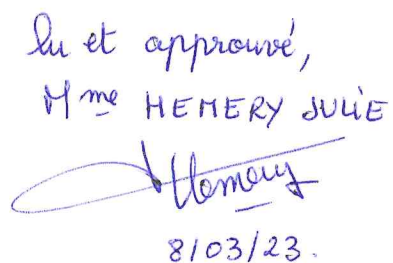 lu et approuvé,
Mme HEMERY JULIE
Hemery
8/03/23.